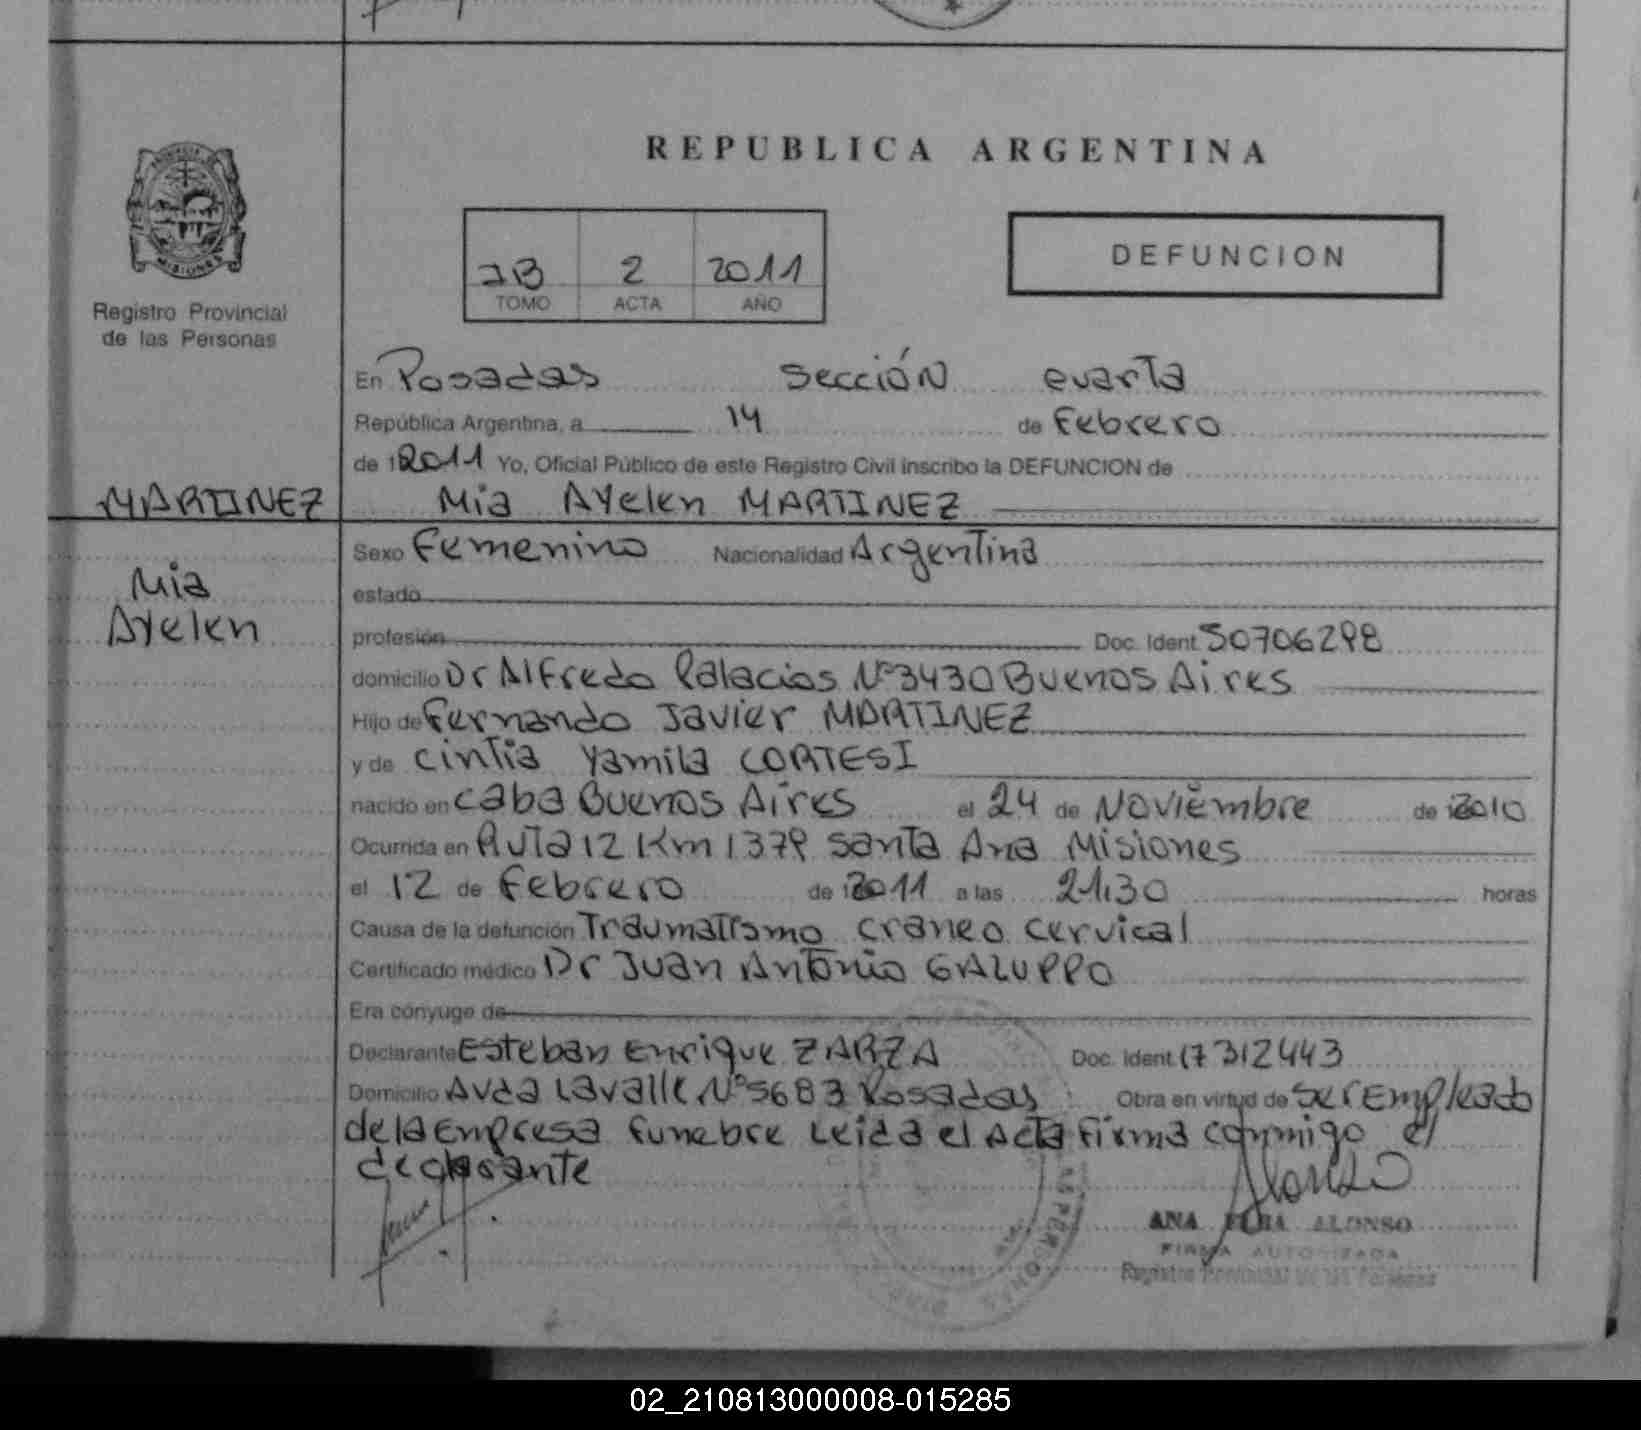 REPUBLICA ARGENTINA
PROVINCIA DE
MISIONES
Registro Provincial
de las Personas
1B 2 2011
TOMO ACTA AÑO
DEFUNCION
En Posadas sección cuarta
República Argentina, a 14 de Febrero
de 12011 Yo, Oficial Público de este Registro Civil inscribo la DEFUNCION de
MARTINEZ Mia Ayelen MARTINEZ
Sexo Femenino Nacionalidad Argentina
Mia
estado
Ayelen
profesión Doc. Ident. 50706298
domicilio Dr Alfredo Palacios Nº 3430 Buenos Aires
Hijo de Fernando Javier MARTINEZ
y de Cintia Yamila CORTESI
nacido en Caba Buenos Aires el 24 de Noviembre de 2010
Ocurrida en Ruta 12 Km 1379 Santa Ana Misiones
el 12 de Febrero de 2011 a las 21:30 horas
Causa de la defunción Traumatismo craneo cervical
Certificado médico Dr Juan Antonio GALUPPO
Era cónyuge de
Declarante Esteban Enrique ZARZA Doc. Ident. 17312443
Domicilio Avda Lavalle Nº 5683 Posadas Obra en virtud de ser Empleado
de la Empresa Funebre Leida el Acta Firma conmigo el
declarante
Alonso
ANA ALONSO
FIRMA AUTORIZADA
Registro Provincial de las Personas
02_210813000008-015285